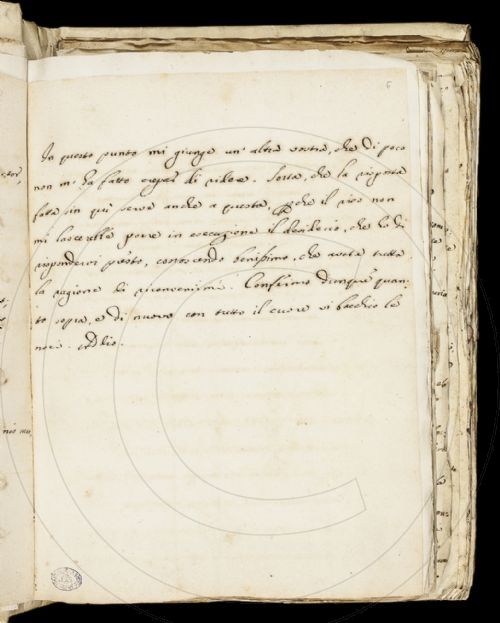 6
In questo punto mi giunge un' altra vostra, che di poco
non m' ha fatto crepar di ridere. Sorta, che la risposta
fata in qui serve anche a questa, perche il riso non
mi lascerebbe porre in esecuzione il desiderio, che hò di
rispondervi presto, conoscendo benissimo, che avete tutta
la ragione di rivenirmi. Confermo dunque quan-
to sopra, e di nuovo con tutto il cuore vi bacchio le
nari. Addio.